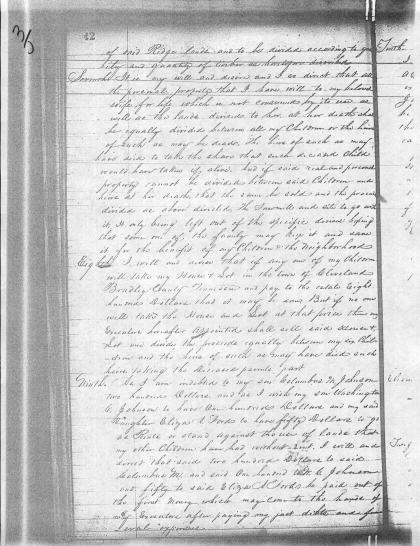 42
of said Ridge lands and to be divided according to qua
lity and quantity of timber as heretofore directed
It is my will and desire and I so direct that all
the personal property that I have will to my beloved
wife for life which is not consumed by its use as
well as the lands devised to her at her death shall
be equally divided between all my Children or the heirs
of such as may be dead. The heirs of such as may
have died to take the share that such deceased Child
would have taken if alive. And if said real and personal
property cannot be divided between said Children and
heirs at her death, then the same be sold and the proceeds
divided as above directed. The Sawmill and site to go with
it, it only being left out of the specific devise hoping
that some one of the family may buy it and save
it for the benefit of my Children & the Neighborhood
Eighth I will and desire that if any one of my Children
will take my House & Lot in the town of Cleveland
Bradley County Tennessee and pay to the estate Eight
hundred Dollars that it may be so But if no one
will take the House and Lot at that price then my
Executor hereafter appointed shall sell said House &
Lot and divide the proceeds equally between my Chil
dren and the heirs of such as may have died such
heirs taking the deceased parents part
Ninth As I am indebted to my son Columbus M. Johnson
two hundred Dollars and as I wish my son Washington
C. Johnson to have One hundred Dollars and my said
Daughter Eliza A Fords to have fifty Dollars to go
as or stand against the use of lands that
my other Children have had without Rent, I will and
direct that said two hundred Dollars to said
Columbus M. and said One hundred to W. C. Johnson
and fifty to said Eliza A Fords be paid out of
the first money which may come to the hands of
my Executor after paying my just debts and fun
eral expenses